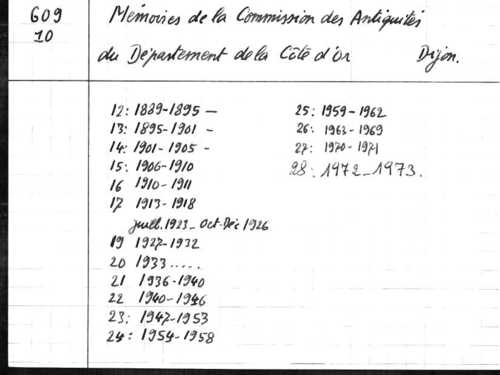 609
10
Mémoires de la Commission des Antiquités
du Département de la Côte d'or Dijon.
12: 1889-1895 —
13: 1895-1901 -
14: 1901-1905 -
15: 1906-1910
16 1910-1911
17 1913-1918
juill. 1923_ Oct-Déc 1926
19 1927-1932
20 1933.....
21 1936-1940
22 1940-1946
23: 1947-1953
24: 1954-1958
25: 1959-1962
26: 1963-1969
27: 1970-1971
28: 1972_1973.